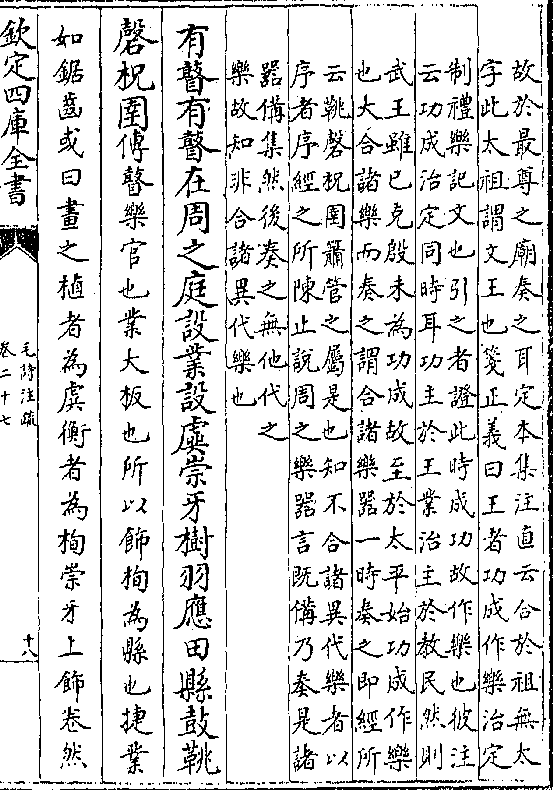 故於最尊之廟奏之耳定本集注直云合於祖無太
字此太祖謂文王也箋正義曰王者功成作樂治定
制禮樂記文也引之者證此時成功故作樂也彼注
云功成治定同時耳功主於王業治主於教民然則
武王雖已克殷未為功成故至於太平始功成作樂
也大合諸樂而奏之謂合諸樂器一時奏之即經所
云鞉磬柷圉簫管之屬是也知不合諸異代樂者以
序者序經之所陳止說周之樂器言既備乃奏是諸
器備集然後奏之無他代之
樂故知非合諸異代樂也
有瞽有瞽在周之庭設業設虡崇牙樹羽應田縣鼓鞉
磬柷圉傳瞽樂官也業大板也所以飾栒為縣也捷業
如鋸齒或曰畫之植者為虡衡者為栒崇牙上飾卷然
欽定四庫全書
毛詩注疏
卷二十七
十八